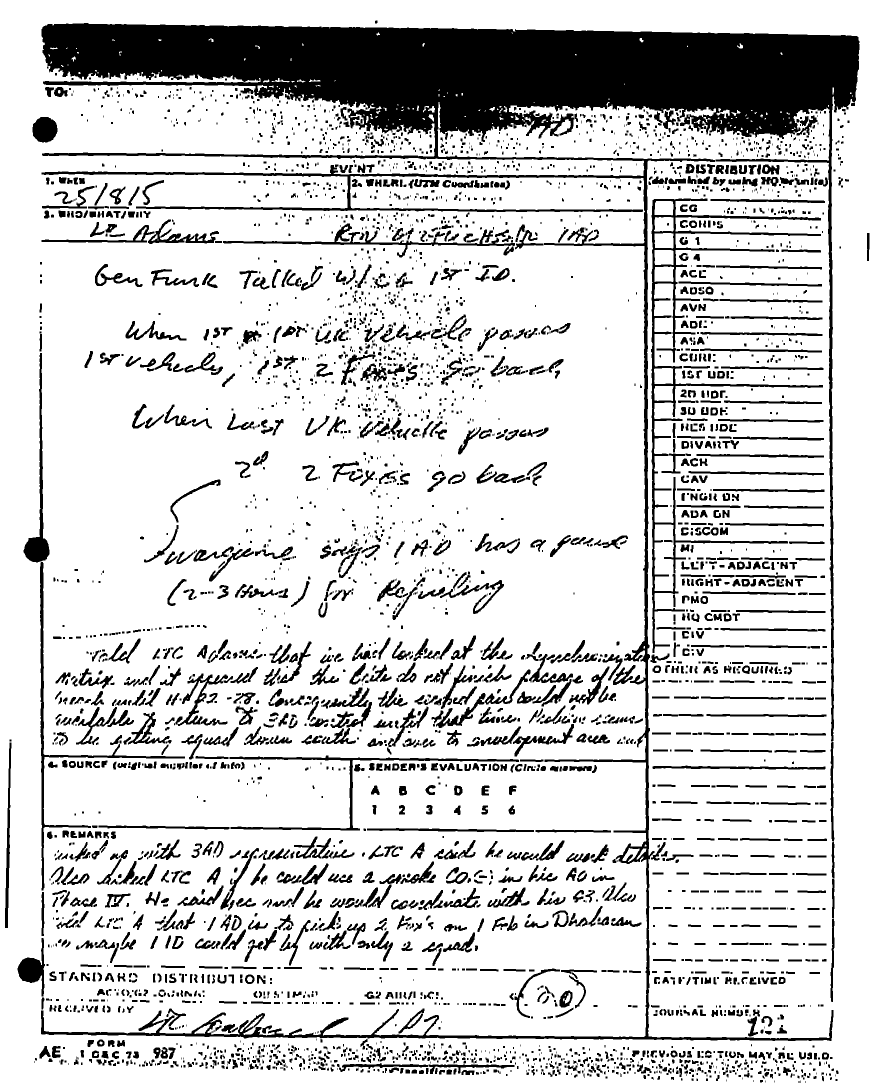 TO:
AD
EVENT
DISTRIBUTION
(determined by using HQ or units)
1. WHEN
25/815
2. WHERE (UTM Coordinates)
3. WHO/WHAT/WHY
Adams
1AD
Gen Funk Talked w/CG 1ST ID.
When 1ST 1ST UK Vehicle passes
1ST Vehicle, 1ST 2 Foxes go back
When Last UK Vehicle passes
2d 2 Foxes go back
wargame says 1AD has a pause
(2-3 Hours) for Refueling
Told LTC Adams that we had looked at the Synchronization
Matrix and it appeared that the Brits do not finish passage of the
breach until H+22-28. Consequently the second pair could not be
available to return to 3AD control until that time. Problem seems
to be getting squad down south and over to envelopment area and
4. SOURCE (original supplier of info)
5. SENDER'S EVALUATION (Circle answers)
A B C D E F
1 2 3 4 5 6
6. REMARKS
linked up with 3AD representative. LTC A said he would work details.
Also asked LTC A if he could use a smoke CO.(-) in his AO in
Phase IV. He said yes and he would coordinate with his G3. Also
told LTC A that 1AD is to pick up 2 Fox's on 1 Feb in Dhahran
so maybe 1ID could get by with only 2 squad.
STANDARD DISTRIBUTION:
20
RECEIVED BY
CG
CORPS
G 1
G 4
ACE
ADSO
AVN
ADE
ASA
CURE
1ST BDE
2D BDE
3D BDE
RES BDE
DIVARTY
ACR
CAV
ENGR BN
ADA BN
DISCOM
MI
LEFT-ADJACENT
RIGHT-ADJACENT
PMO
HQ CMDT
DIV
DIV
OTHER AS REQUIRED
DATE/TIME RECEIVED
JOURNAL NUMBER
AE FORM 1 DEC 73 987
PREVIOUS EDITION MAY BE USED.
Classification